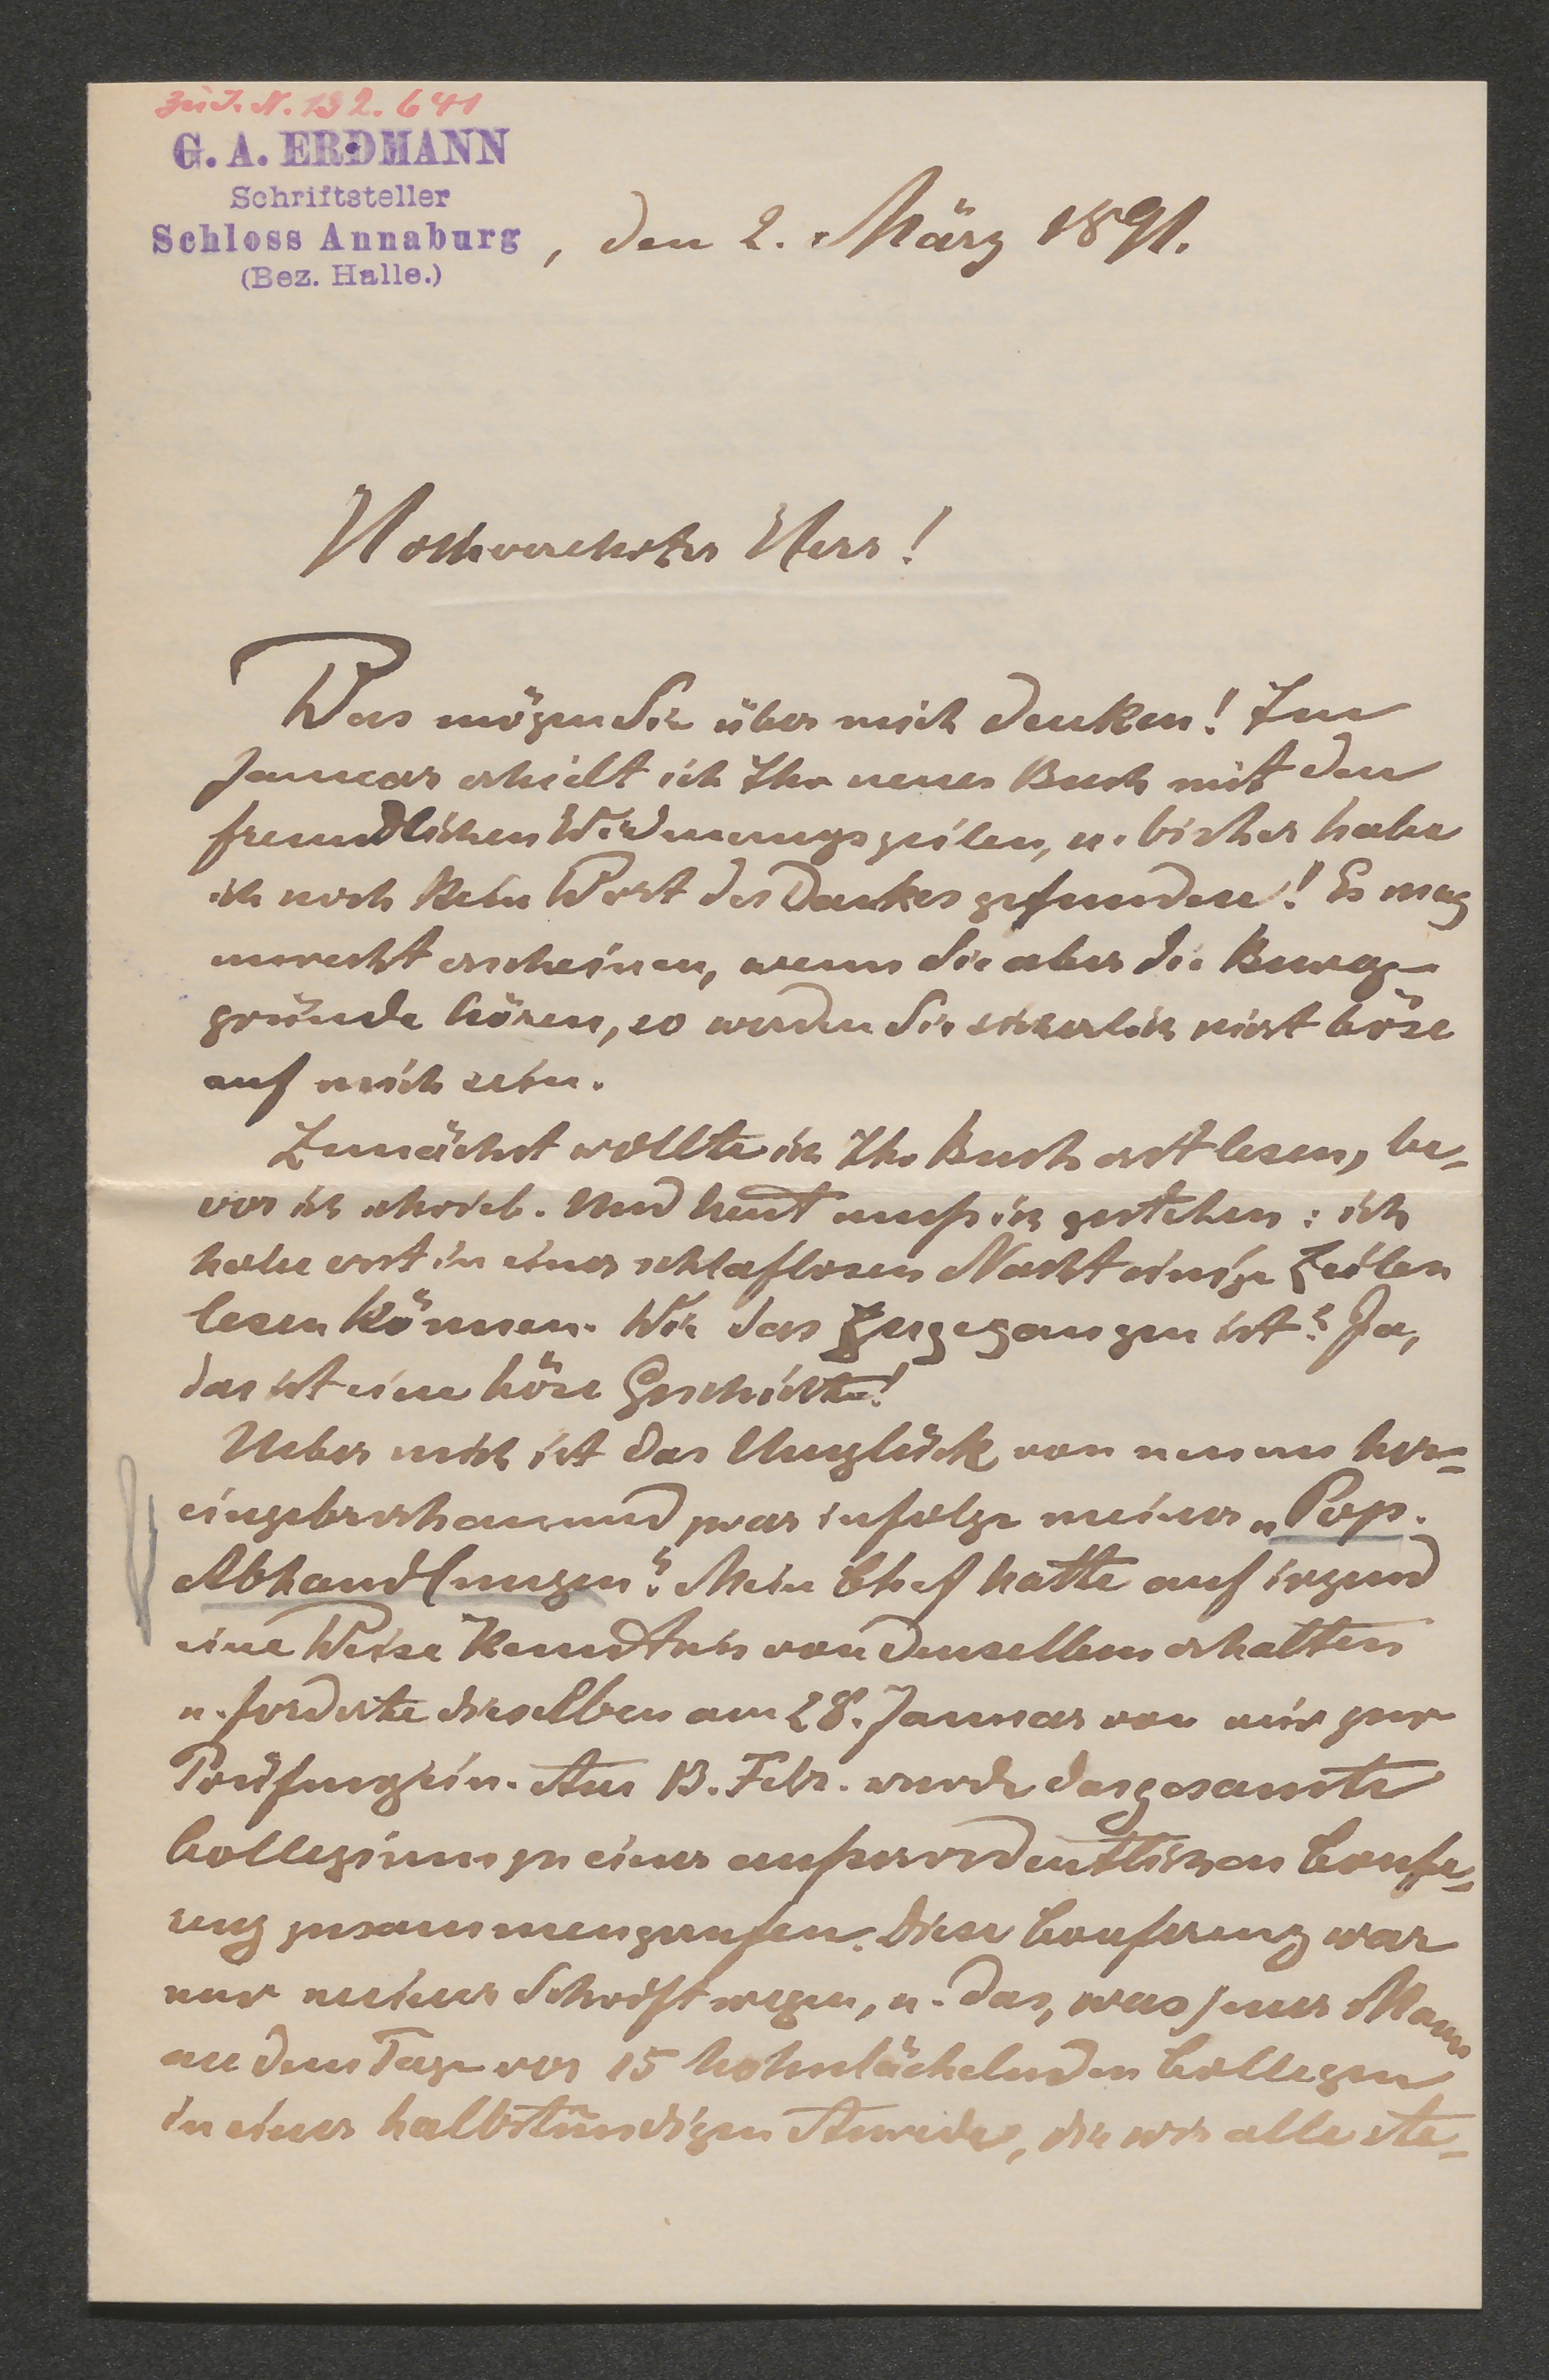 Zu I. N. 132.641
G. A. ERDMANN
Schriftsteller
Schloss Annaburg
(Bez. Halle.)
, den 2. März 1891.
Hochverehrter Herr!
Was mögen Sie über mich denken! Im
Januar erhielt ich Ihr neues Buch mit den
freundlichen Widmungszeilen, u. bisher habe
ich noch kein Wort des Dankes gefunden! Es mag
unrecht erscheinen, wenn Sie aber die Beweg-
gründe hören, so werden Sie sicherlich nicht böse
auf mich sein.
Zunächst wollte ich Ihr Buch erst lesen, be-
vor ich schrieb. Und heut muß ich gestehen: ich
habe erst in einer schlaflosen Nacht einige Zeilen
lesen können. Wie das zugegangen ist? Ja,
das ist eine böse Geschichte!
Ueber mich ist das Unglück von neuem her-
eingebrochen und zwar infolge meiner „Pop.
Abhandlungen". Mein Chef hatte auf irgend
eine Weise Kenntnis von denselben erhalten
u. forderte dieselben am 28. Januar von mir zur
Prüfung ein. Am 13. Febr. wurde das gesamte
Collegium zu einer außerordentlichen Confe-
renz zusammengerufen. Diese Conferenz war
nur meiner Schrift wegen, u. das, was jener Mann
an dem Tage vor 15 hohnlächelnden Collegen
in einer halbstündigen Anrede, die wir alle ste-